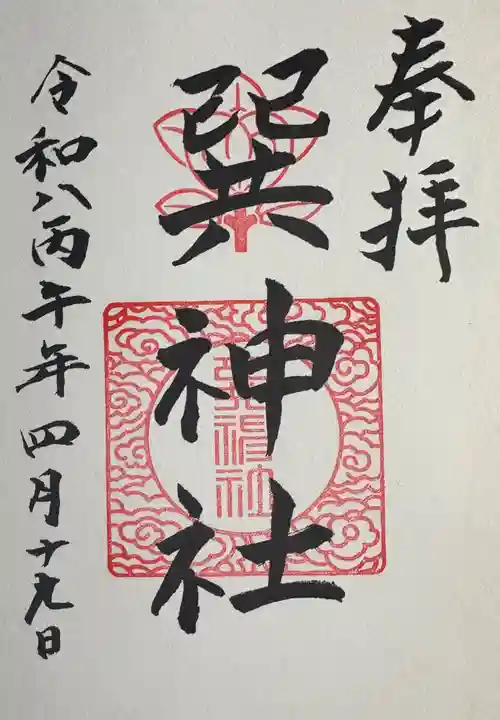 奉拝
巽神社
巽神社
令和八丙午年四月十九日